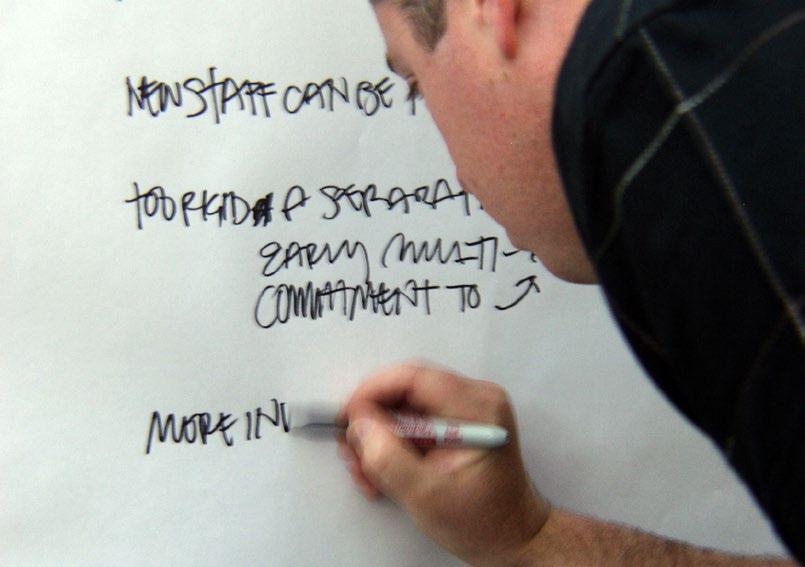 NEW STAFF CAN BE
TOO RIGID A SEPARAT
EARLY MULTI-
COMMITMENT TO
MORE INV